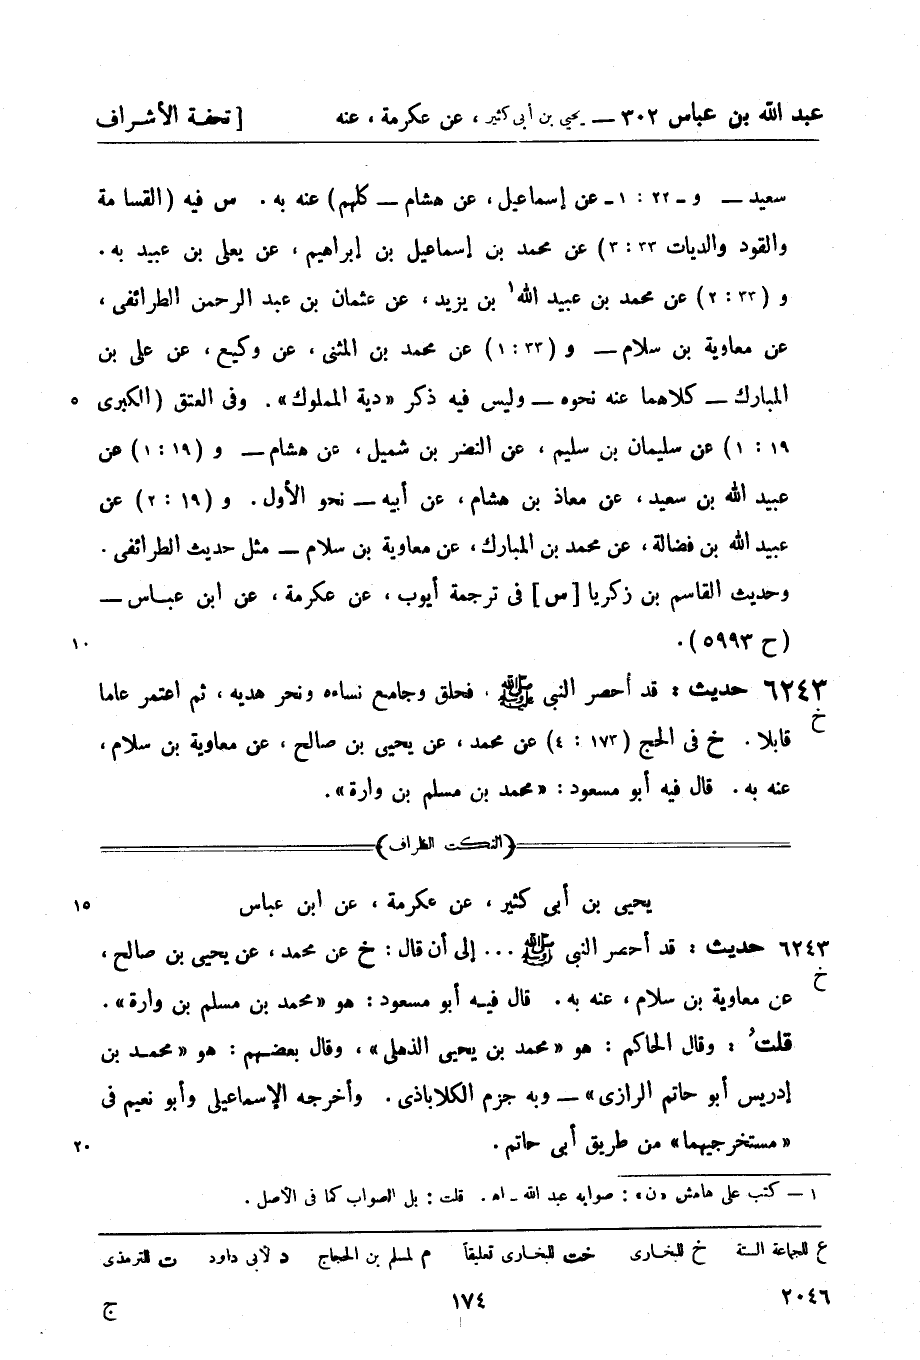 عبد الله بن عباس ٣٠٢ — يحيى بن أبى كثير ، عن عكرمة ، عنه [ تحفة الأشراف
سعيد — و ـ ٢٢ : ١ ـ عن إسماعيل ، عن هشام — كلهم) عنه به . س فيه (القسامة
والقود والديات ٣٣ : ٣) عن محمد بن إسماعيل بن إبراهيم ، عن يعلى بن عبيد به .
و (٣٣ : ٢) عن محمد بن عبيد الله١ بن يزيد ، عن عثمان بن عبد الرحمن الطرائفى ،
عن معاوية بن سلام — و (٣٣ : ١) عن محمد بن المثنى ، عن وكيع ، عن على بن
المبارك — كلاهما عنه نحوه — وليس فيه ذكر «دية المملوك» . وفى العتق (الكبرى ٥
١٩ : ١) عن سليمان بن سليم ، عن النضر بن شميل ، عن هشام — و (١٩ : ١) عن
عبيد الله بن سعيد ، عن معاذ بن هشام ، عن أبيه — نحو الأول . و (١٩ : ٢) عن
عبيد الله بن فضالة ، عن محمد بن المبارك ، عن معاوية بن سلام — مثل حديث الطرائفى .
وحديث القاسم بن زكريا [س] فى ترجمة أيوب ، عن عكرمة ، عن ابن عباس —
(ح ٥٩٩٣) . ١٠
٦٢٤٣ حديث : قد أحصر النبى ﷺ ، فحلق وجامع نساءه ونحر هديه ، ثم اعتمر عاما
خ
قابلا . خ فى الحج (١٧٣ : ٤) عن محمد ، عن يحيى بن صالح ، عن معاوية بن سلام ،
عنه به . قال فيه أبو مسعود : «محمد بن مسلم بن وارة» .
(النكت الظراف)
يحيى بن أبى كثير ، عن عكرمة ، عن ابن عباس ١٥
٦٢٤٣ حديث : قد أحصر النبى ﷺ ... إلى أن قال : خ عن محمد ، عن يحيى بن صالح ،
خ
عن معاوية بن سلام ، عنه به . قال فيه أبو مسعود : هو «محمد بن مسلم بن وارة» .
قلت : وقال الحاكم : هو «محمد بن يحيى الذهلى» ، وقال بعضهم : هو «محمد بن
إدريس أبو حاتم الرازى» — وبه جزم الكلاباذى . وأخرجه الإسماعيلى وأبو نعيم فى
«مستخرجيهما» من طريق أبى حاتم . ٢٠
١ — كتب على هامش «ن» : صوابه عبد الله ـ اه . قلت : بل الصواب كما فى الأصل .
ع للجماعة الستة خ للبخارى خت للبخارى تعليقاً م لمسلم بن الحجاج د لأبى داود ت للترمذى
٢٠٤٦ ١٧٤ ج